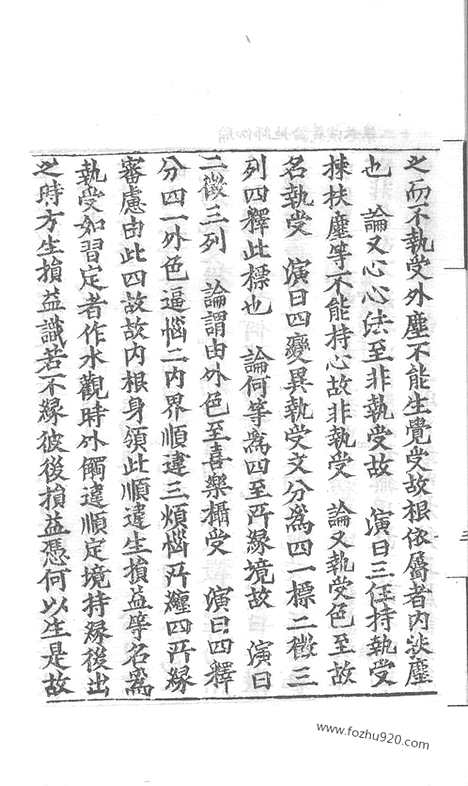 之而不執受外塵不能生覺受故根依屬者內浹塵
也　論又心心法至非執受故　演曰三任持執受
揀扶塵等不能持心故非執受　論又執受色至故
名執受　演曰四變異執受文分爲四一標二徵三
列四釋此標也　論何等爲四至所緣境故　演曰
二徵三列　論謂由外色至喜樂攝受　演曰四釋
分四一外色逼惱二內界順違三煩惱所纏四所緣
審慮由此四故故內根身領此順違生損益等名爲
執受如習定者作水觀時外觸違順定境持緣後出
之時方生損益識若不緣彼後損益憑何以生是故
三
www.fozhu920.com